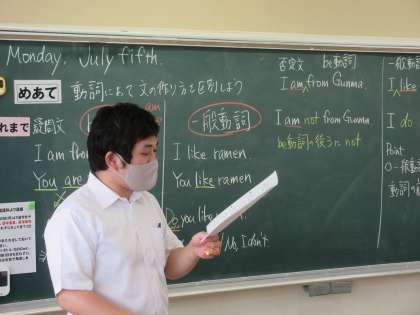 Monday, July fifth.
めあて
動詞によって文の作り方を区別しよう
れまで
疑問文
am
一般動詞
I am from
I like ramen.
You are
You like ramen.
Do you like
No, I don't.
否定文 be動詞
I am from Gunma.
I am not from Gunma.
be動詞の後ろに not
一般動
I like
I do
Point
動詞の